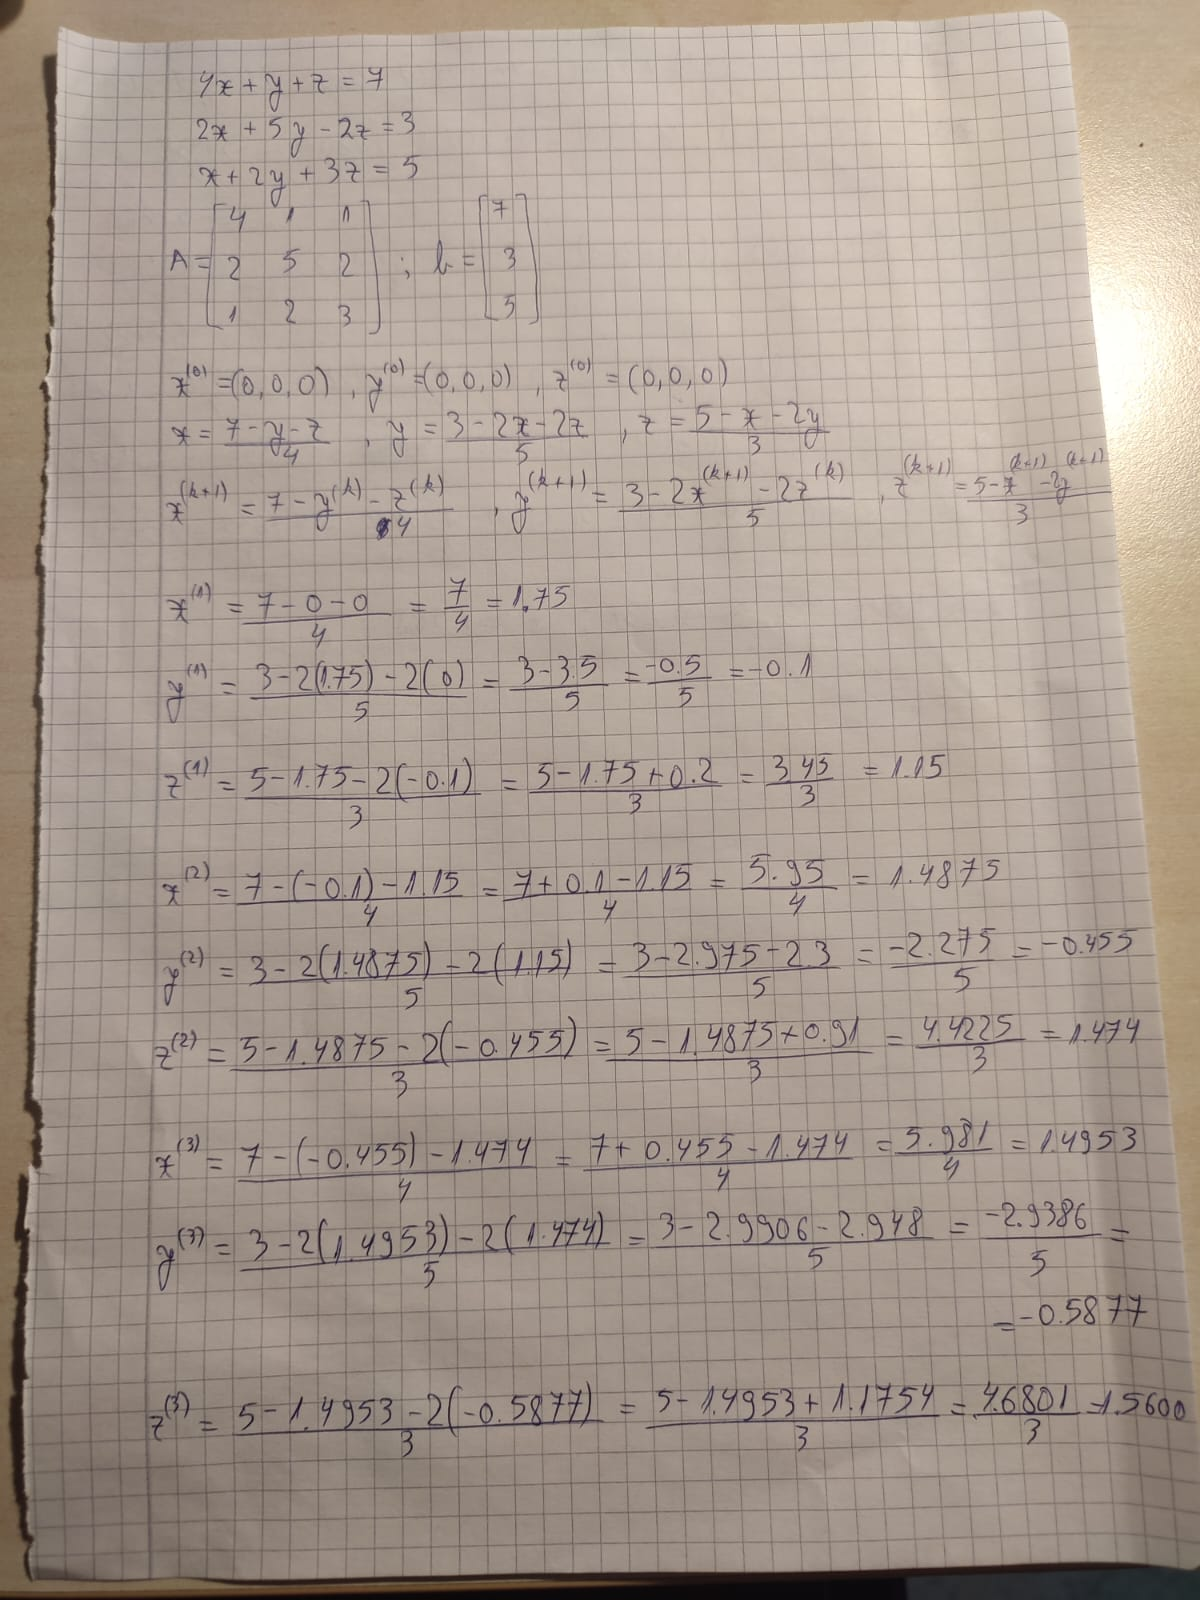 4x + y + z = 7
2x + 5y - 2z = 3
x + 2y + 3z = 5
A = [4 1 1; 2 5 2; 1 2 3] ; b = [7; 3; 5]
x^(0) = (0,0,0) , y^(0) = (0,0,0) , z^(0) = (0,0,0)
x = (7 - y - z)/4 , y = (3 - 2x - 2z)/5 , z = (5 - x - 2y)/3
x^(k+1) = (7 - y^(k) - z^(k))/4 , y^(k+1) = (3 - 2x^(k+1) - 2z^(k))/5 , z^(k+1) = (5 - x^(k+1) - 2y^(k+1))/3
x^(1) = (7 - 0 - 0)/4 = 7/4 = 1.75
y^(1) = (3 - 2(1.75) - 2(0))/5 = (3 - 3.5)/5 = -0.5/5 = -0.1
z^(1) = (5 - 1.75 - 2(-0.1))/3 = (5 - 1.75 + 0.2)/3 = 3.45/3 = 1.15
x^(2) = (7 - (-0.1) - 1.15)/4 = (7 + 0.1 - 1.15)/4 = 5.95/4 = 1.4875
y^(2) = (3 - 2(1.4875) - 2(1.15))/5 = (3 - 2.975 - 2.3)/5 = -2.275/5 = -0.455
z^(2) = (5 - 1.4875 - 2(-0.455))/3 = (5 - 1.4875 + 0.91)/3 = 4.4225/3 = 1.474
x^(3) = (7 - (-0.455) - 1.474)/4 = (7 + 0.455 - 1.474)/4 = 5.981/4 = 1.4953
y^(3) = (3 - 2(1.4953) - 2(1.474))/5 = (3 - 2.9906 - 2.948)/5 = -2.9386/5 =
= -0.5877
z^(3) = (5 - 1.4953 - 2(-0.5877))/3 = (5 - 1.4953 + 1.1754)/3 = 4.6801/3 = 1.5600